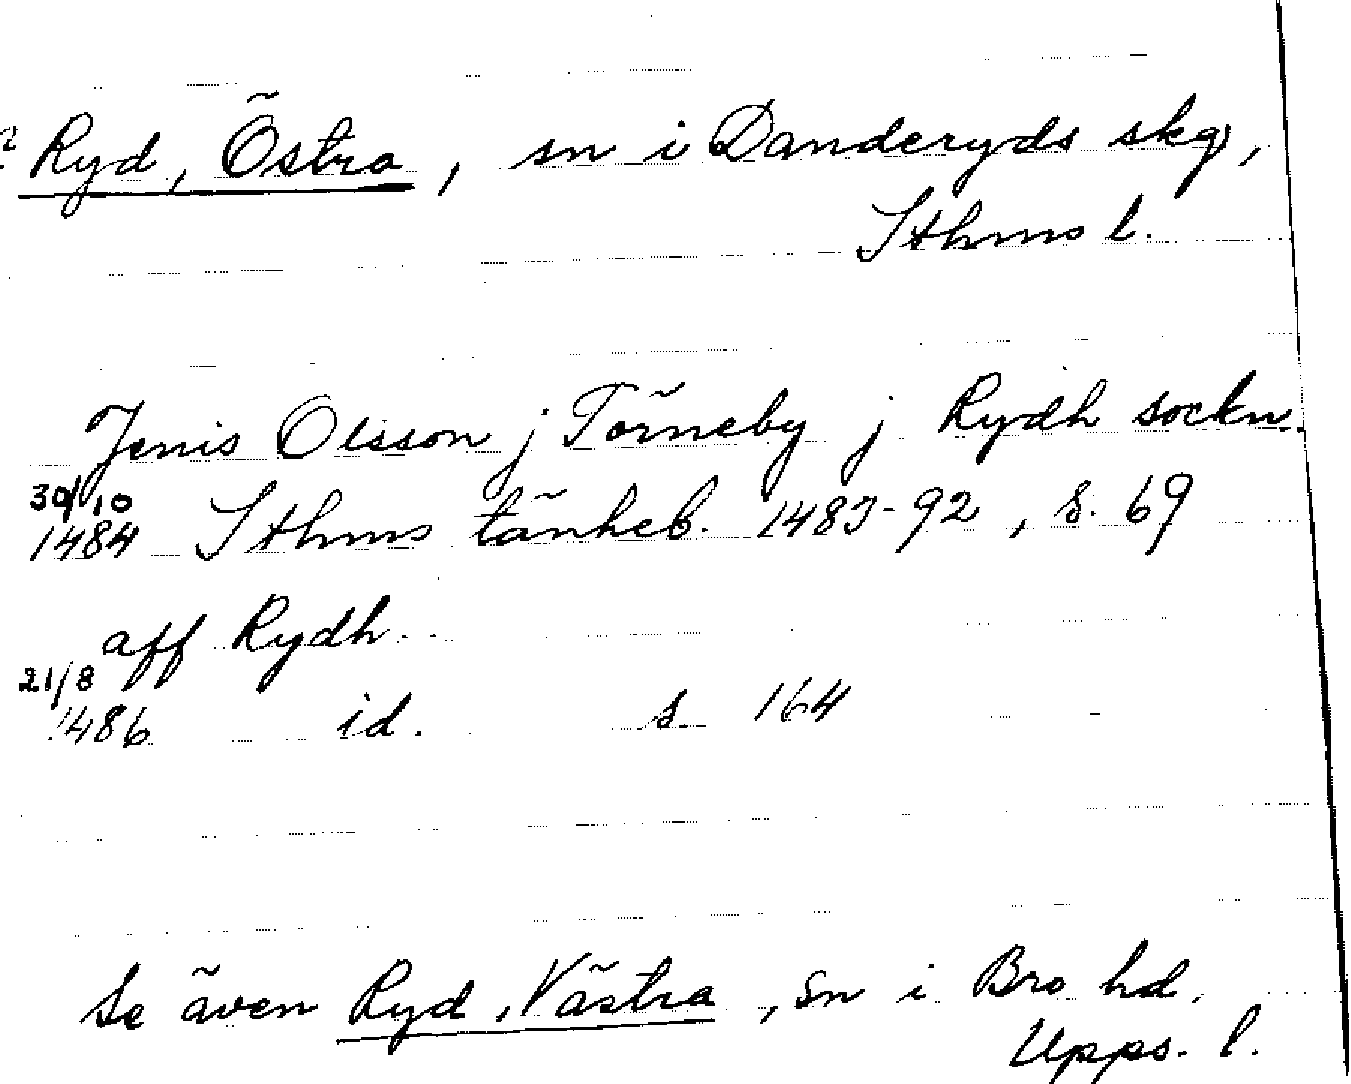 Ryd, Östra, sn i Danderyds skg,
Sthms l.
Jenis Olsson j Törneby j Rydh sockn.
30/10
1484 Sthms tänkeb. 1483-92, s. 69
aff Rydh
21/8
1486 id. s 164
Se även Ryd, Västra, sn i Bro hd.
Upps. l.